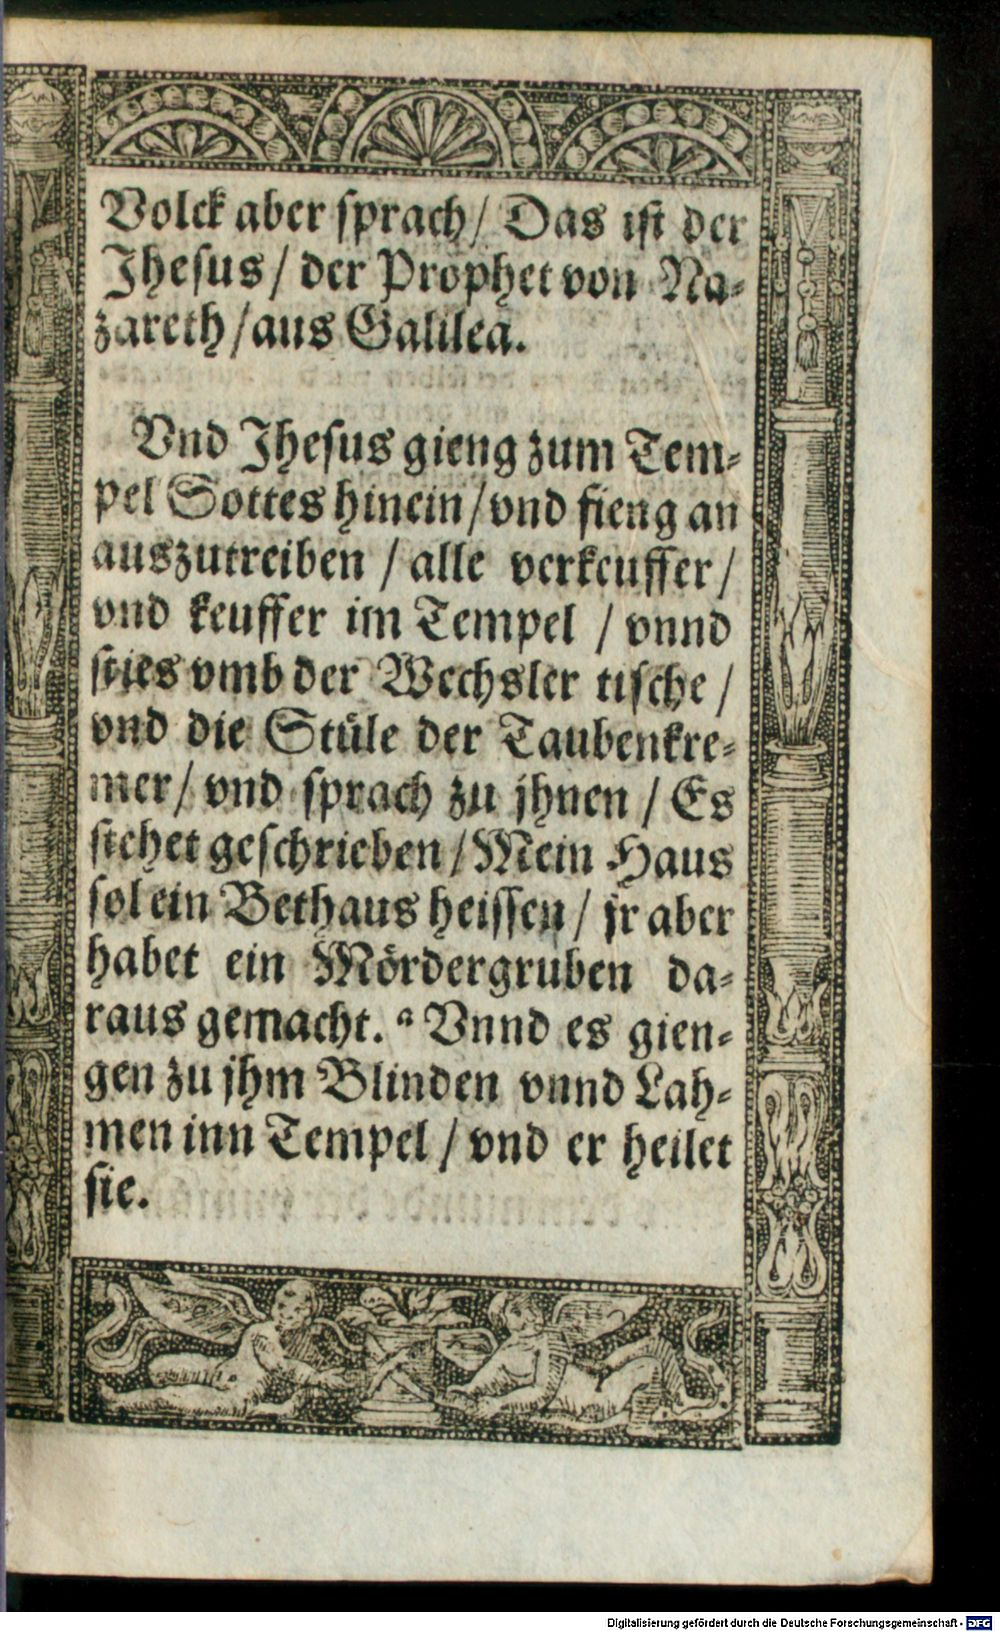 Volck aber sprach/ Das ist der
Jhesus/ der Prophet von Na-
zareth/aus Galilea.
Vnd Jhesus gieng zum Tem-
pel Gottes hinein/vnd fieng an
auszutreiben / alle verkeuffer/
vnd keuffer im Tempel / vnnd
sties vmb der Wechsler tische/
vnd die Stüle der Taubenkre-
mer/ vnd sprach zu jhnen / Es
stehet geschrieben/Mein Haus
sol ein Bethaus heissen/ jr aber
habet ein Mördergruben da-
raus gemacht. a Vnnd es gien-
gen zu jhm Blinden vnnd Lah-
men inn Tempel / vnd er heilet
sie.
Digitalisierung gefördert durch die Deutsche Forschungsgemeinschaft - DFG